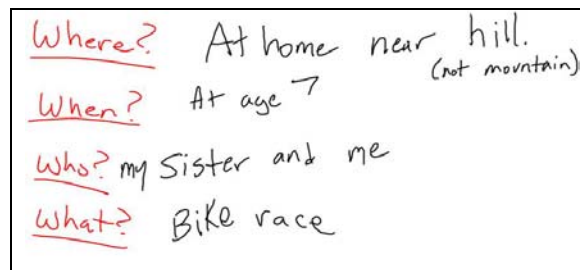 Where? At home near hill.
(not mountain)
When? At age 7
Who? my Sister and me
What? Bike race